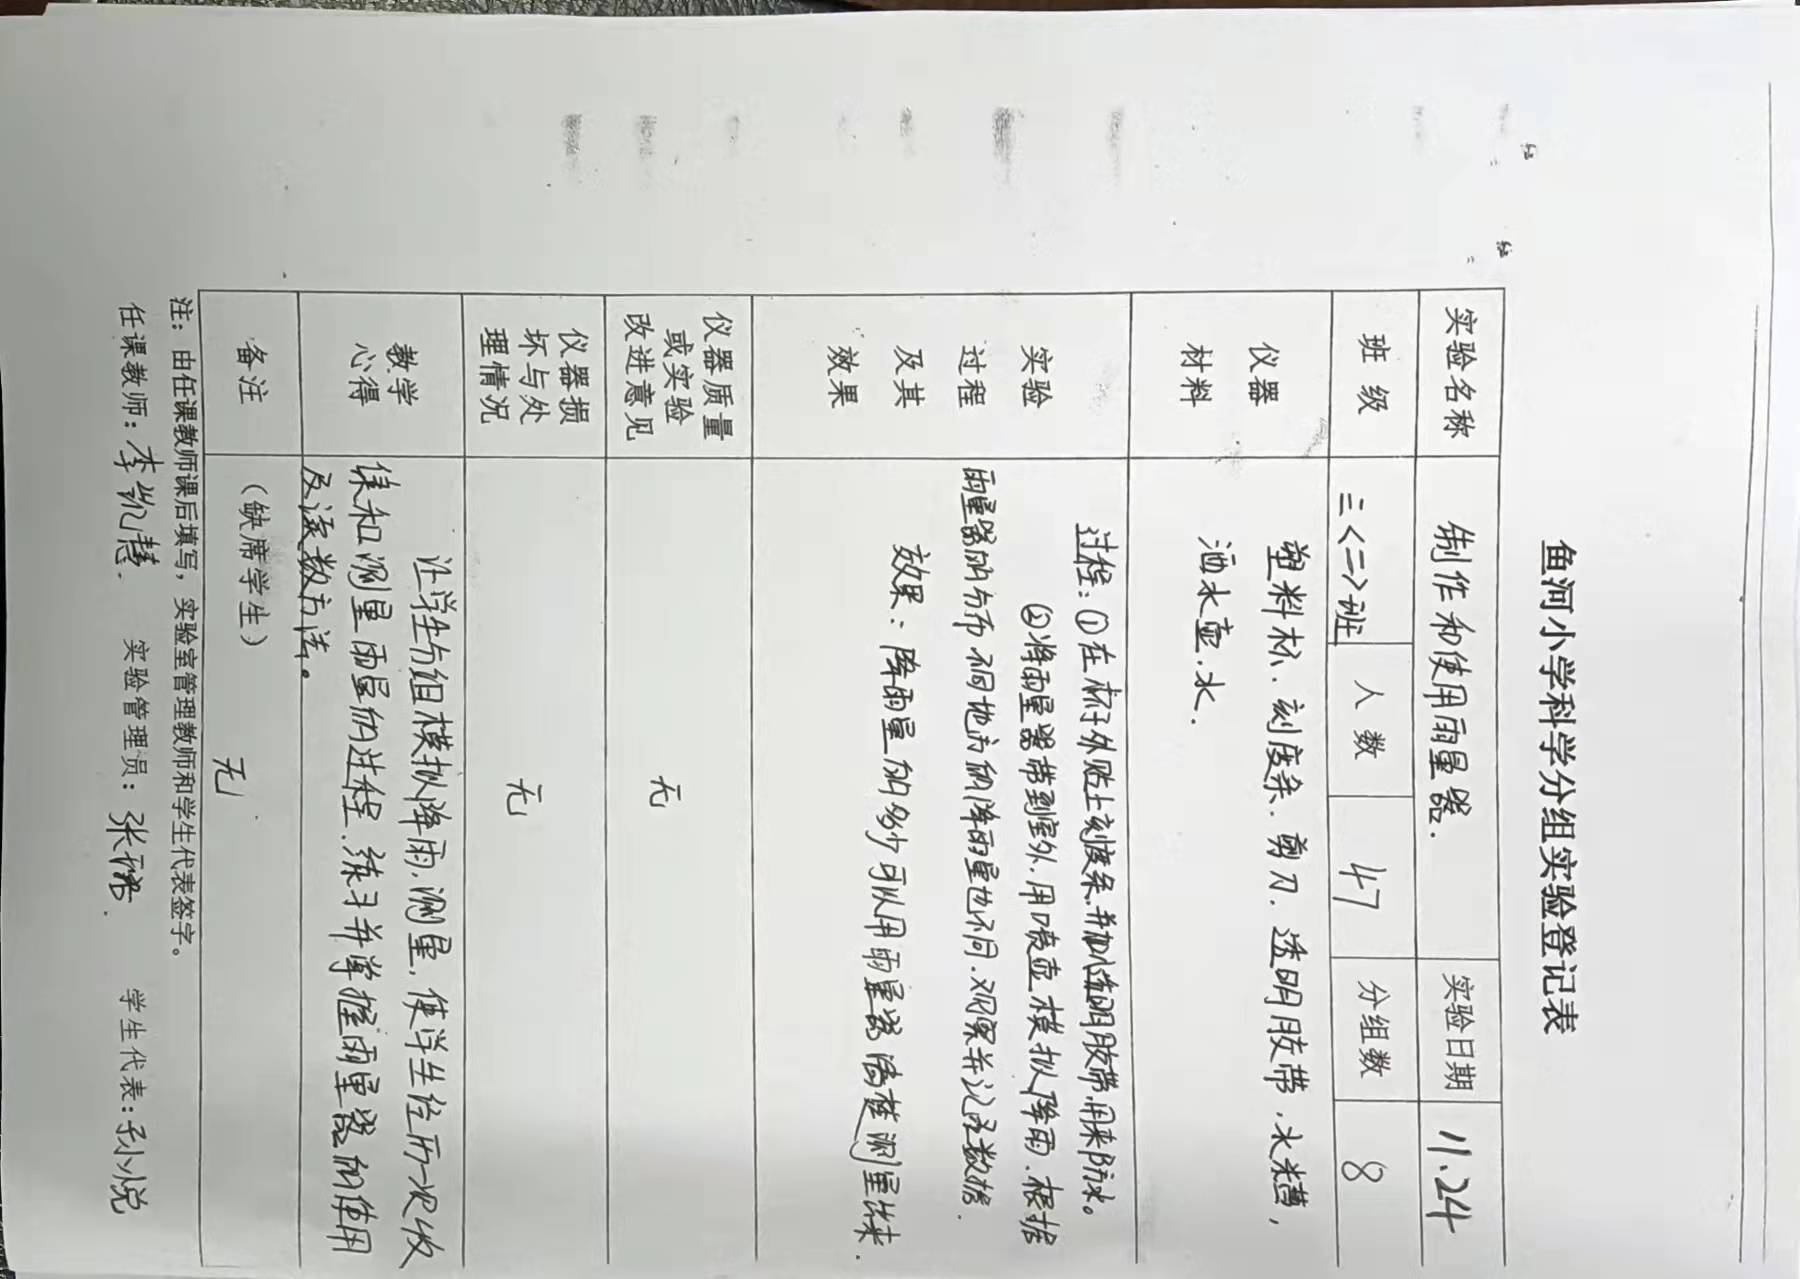 鱼河小学科学分组实验登记表
实验名称 制作和使用雨量器. 实验日期 11.24
班级 三<二>班 人数 47 分组数 8
仪器 塑料杯、刻度条、剪刀、透明胶带、水槽,
材料 洒水壶、水.
过程:①在杯子外贴上刻度条,并加透明胶带,用来防水。
实验 ②将雨量器带到室外,用喷壶模拟降雨.根据
过程 雨量器的分布不同地方的降雨量也不同.观察并记录数据.
及其 效果:降雨量的多少可以用雨量器清楚测量出来.
效果
仪器质量
或实验 无
改进意见
仪器损
坏与处 无
理情况
教学 让学生分组模拟降雨,测量,使学生经历一次收
心得 集和测量雨量的过程.练习并掌握雨量器的使用
及读数方法。
备注 (缺席学生) 无
注:由任课教师课后填写,实验室管理教师和学生代表签字。
任课教师:李凯慧. 实验管理员:张 学生代表:小悦